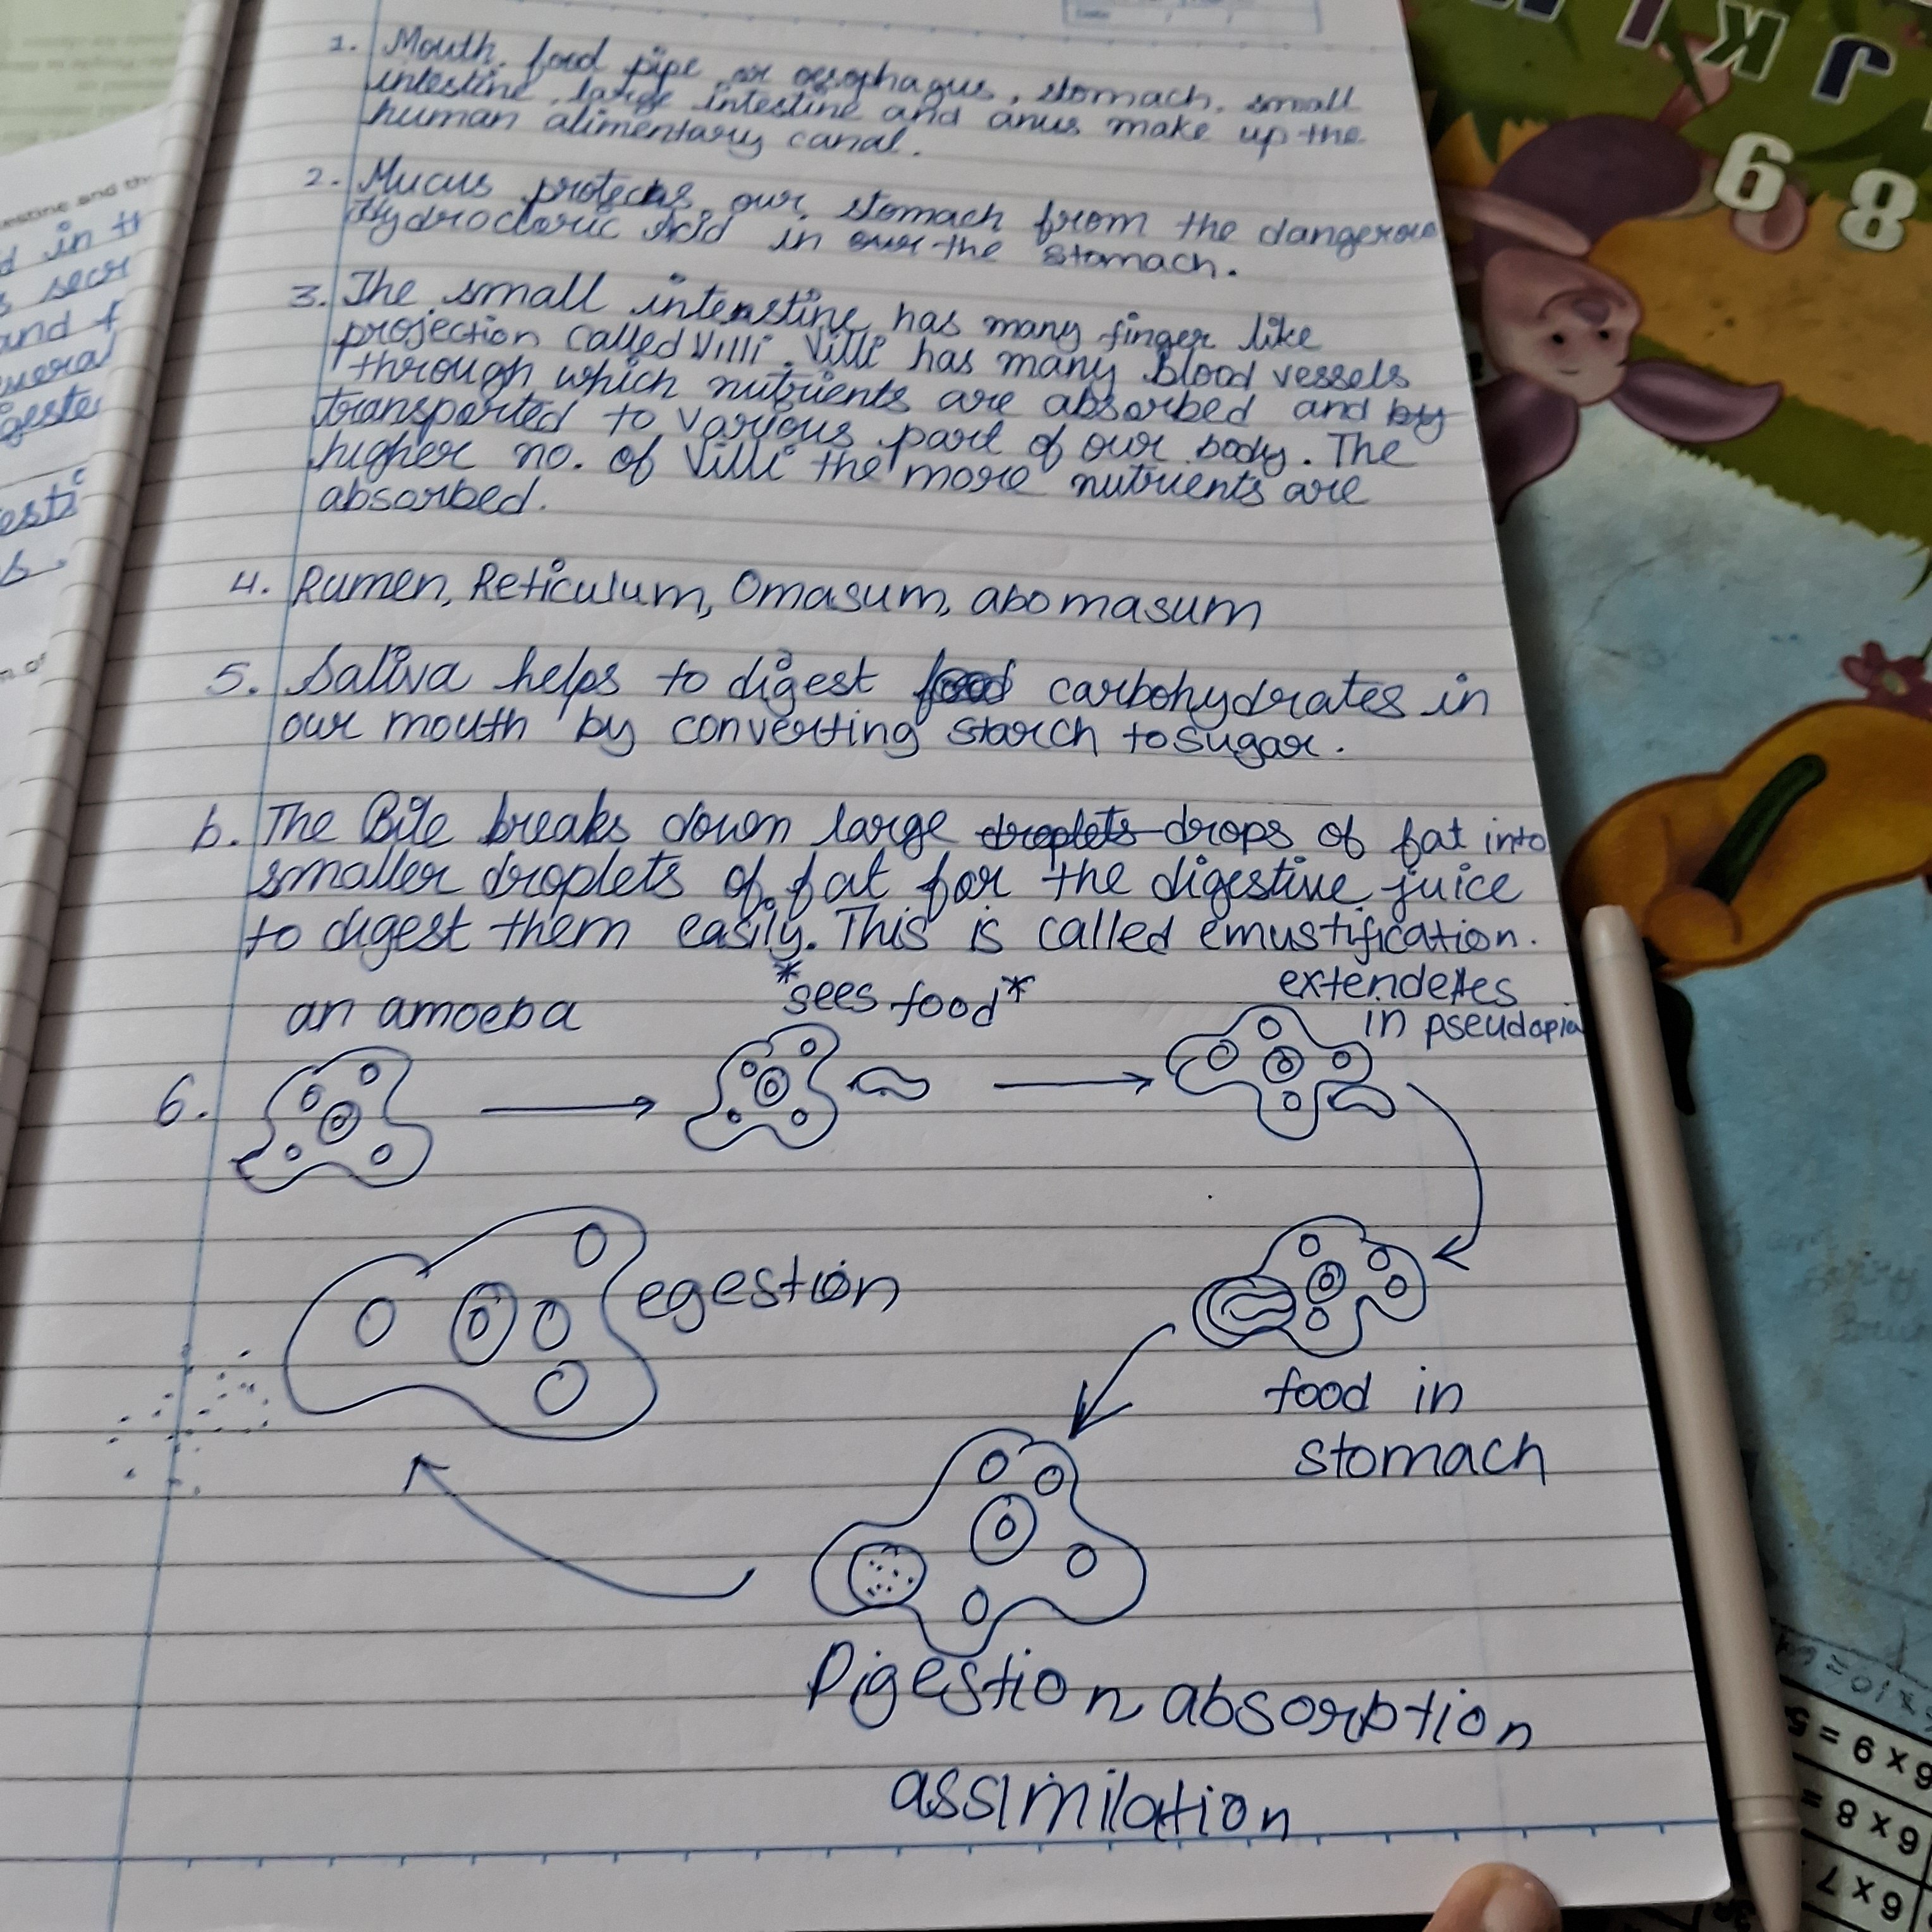 1. Mouth, food pipe or oesophagus, stomach, small
intestine, large intestine and anus make up the
human alimentary canal.
2. Mucus protects our stomach from the dangerous
Hydrocloric Acid in our the stomach.
3. The small intenstine has many finger like
projection called Villi. Villi has many blood vessels
through which nutrients are absorbed and by
transported to various part of our body. The
higher no. of Villi the more nutrients are
absorbed.
4. Rumen, Reticulum, Omasum, abomasum
5. Saliva helps to digest food carbohydrates in
our mouth by converting starch to sugar.
6. The Bile breaks down large droplets drops of fat into
smaller droplets of fat for the digestive juice
to digest them easily. This is called emustification.
an amoeba
*sees food*
in pseudopia
6.
egestion
food in
stomach
Digestion absorption
assimilation
J K L
9 8
6 x 9 = 5
6 x 8 =
6 x 7